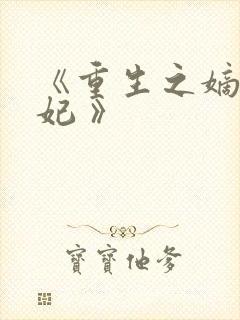 《重生之嫡
妃》
寶寶他爹